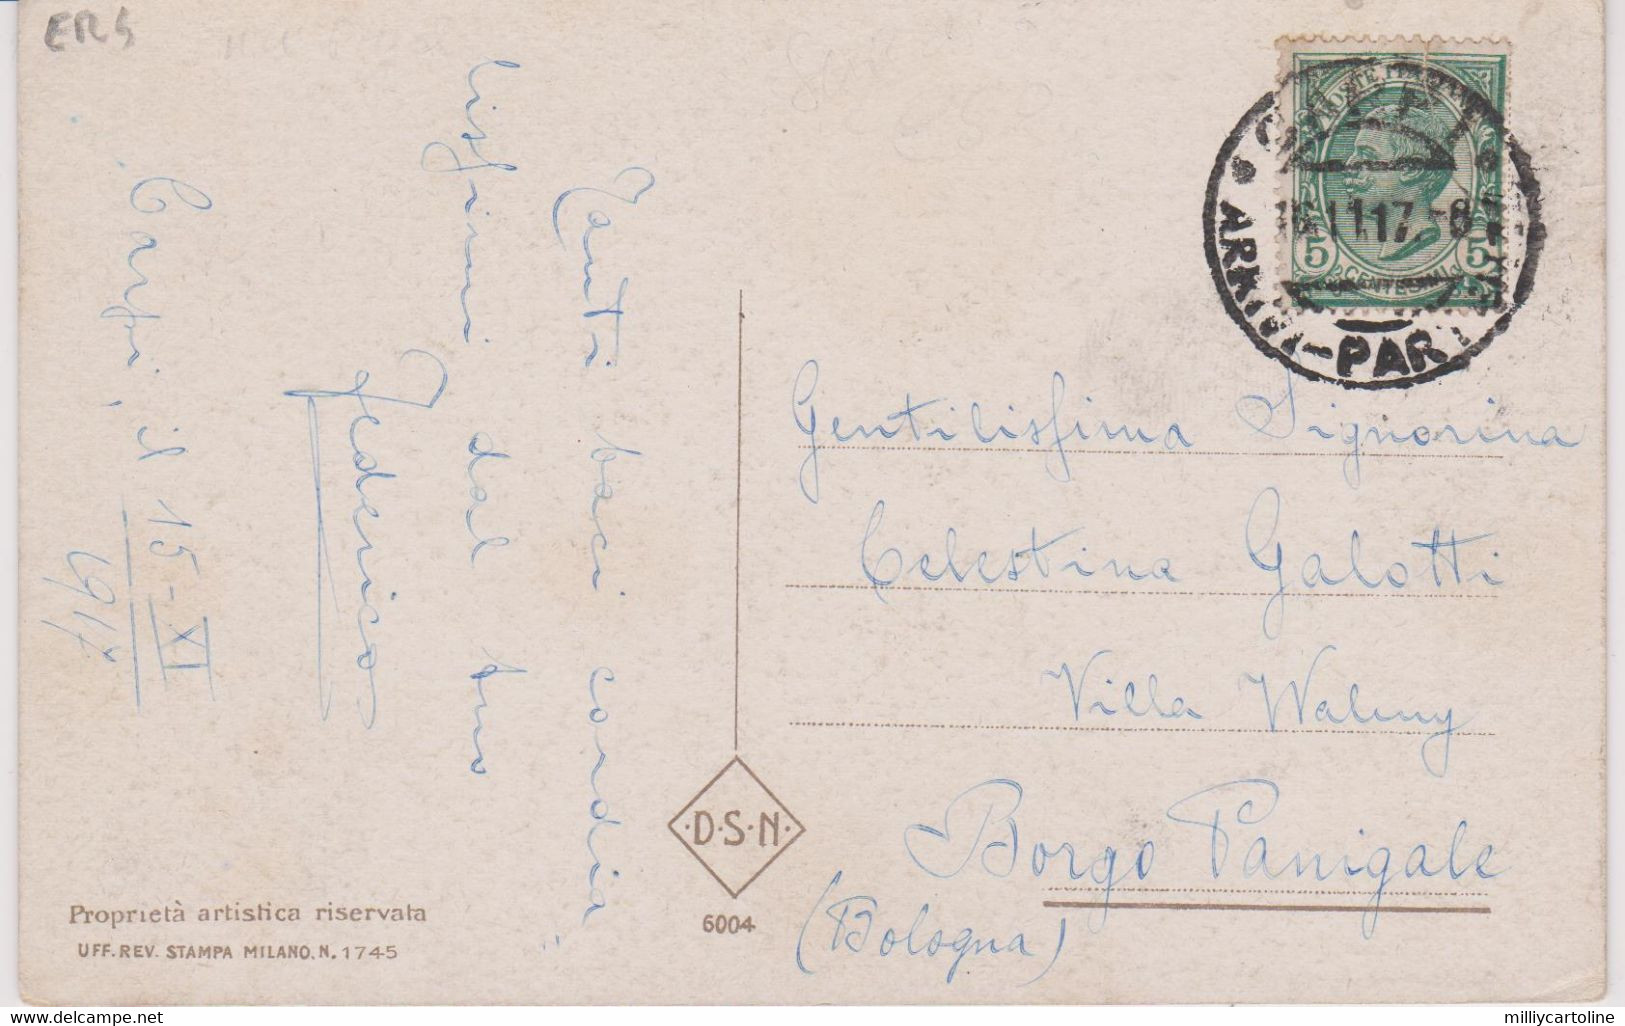 ER5
Tanti baci cordia
lissimi dal tuo
Federico
Carpi, il 15-XI
917
POSTE ITALIANE
5 5
CENTESIMI
CARPI
16.11.17.-8
ARRIVI-PARTENZE
Gentilissima Signorina
Celestina Galotti
Villa Waluy
Borgo Panigale
(Bologna)
·D·S·N·
6004
Proprietà artistica riservata
UFF. REV. STAMPA MILANO. N. 1745
www.delcampe.net
millycartoline